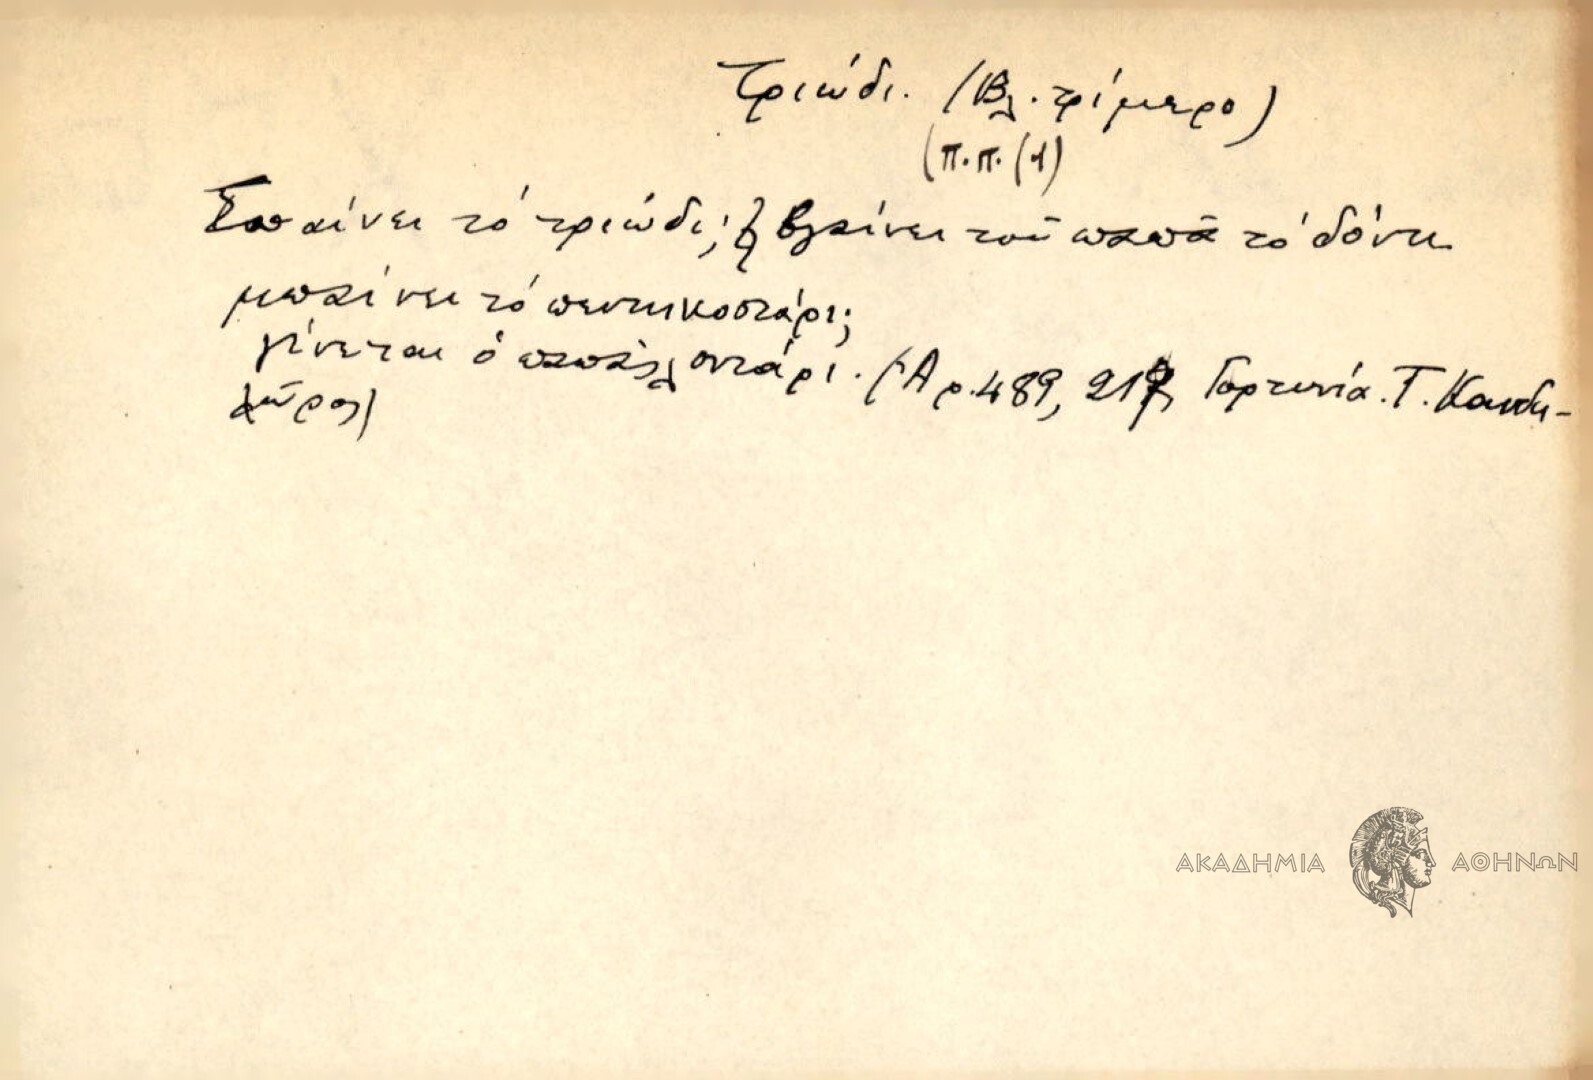 Τριώδι. (Βλ. τρίμερο)
(π.π. (1)
Ἐμπαίνει τό τριώδι; βγαίνει τοῦ παπᾶ τό δόντι
μπαίνει τό πεντηκοστάρι;
γίνεται ὁ παπᾶς λιοντάρι. (Ἀρ. 489, Γορτυνία. Τ. Κανδη-
λῶρος)
ΑΚΑΔΗΜΙΑ ΑΘΗΝΩΝ